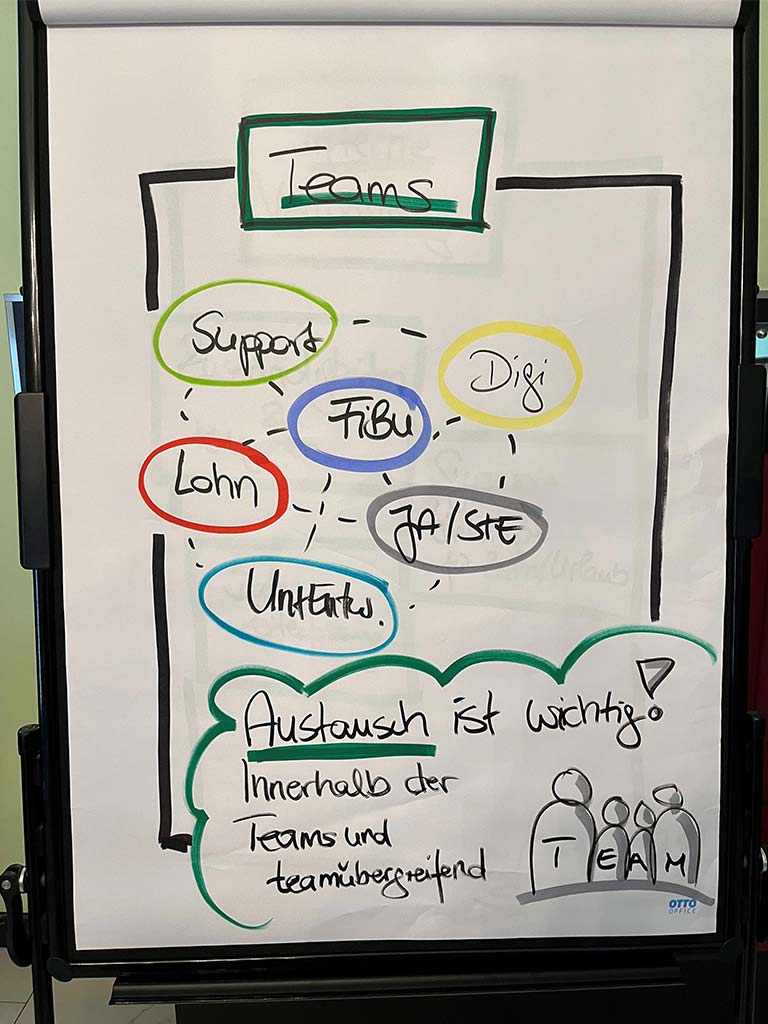 Teams
Support
Digi
FiBu
Lohn
JA/STE
UntEntw.
Austausch ist wichtig!
Innerhalb der
Teams und
teamübergreifend
TEAM
OTTO
OFFICE